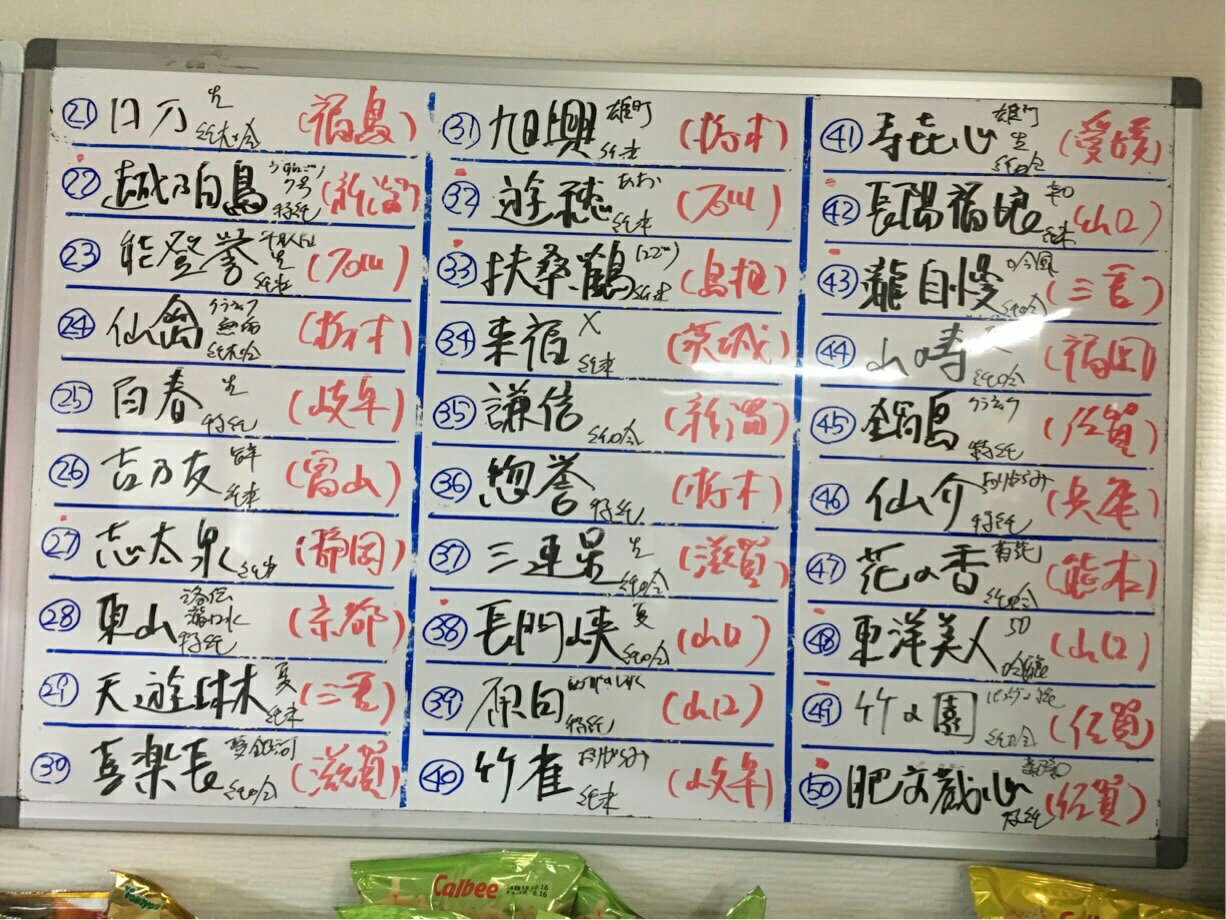 ㉑ 口万 生 純米吟 (福島)
㉒ 越乃白鳥 7号 特純 (新潟)
㉓ 能登誉 生 純米 (石川)
㉔ 仙禽 クラシック 無垢 純米吟 (栃木)
㉕ 百春 生 特純 (岐阜)
㉖ 吉乃友 純米 (富山)
㉗ 志太泉 純米 (静岡)
㉘ 東山 特純 (京都)
㉙ 天遊琳 夏 純米 (三重)
㊴ 喜楽長 夏銀河 純吟 (滋賀)
㉛ 旭興 雄町 純米 (栃木)
㉜ 遊穂 あお 純米 (石川)
㉝ 扶桑鶴 純米 (島根)
㉞ 来福 X 純米 (茨城)
㉟ 謙信 純吟 (新潟)
㊱ 惣誉 特純 (栃木)
㊲ 三連星 生 純吟 (滋賀)
㊳ 長門峡 夏 純吟 (山口)
㊴ 原田 特純 (山口)
㊵ 竹雀 おりがらみ 純米 (岐阜)
㊶ 寿喜心 雄町 生 純吟 (愛媛)
㊷ 長陽福娘 辛口 純米 (山口)
㊸ 瀧自慢 純吟 (三重)
㊹ 山の寿 純吟 (福岡)
㊺ 鍋島 クラシック 特純 (佐賀)
㊻ 仙介 おりがらみ 特純 (兵庫)
㊼ 花の香 純吟 (熊本)
㊽ 東洋美人 50 吟醸 (山口)
㊾ 竹の園 純吟 (佐賀)
㊿ 肥前蔵心 特純 (佐賀)
Calbee